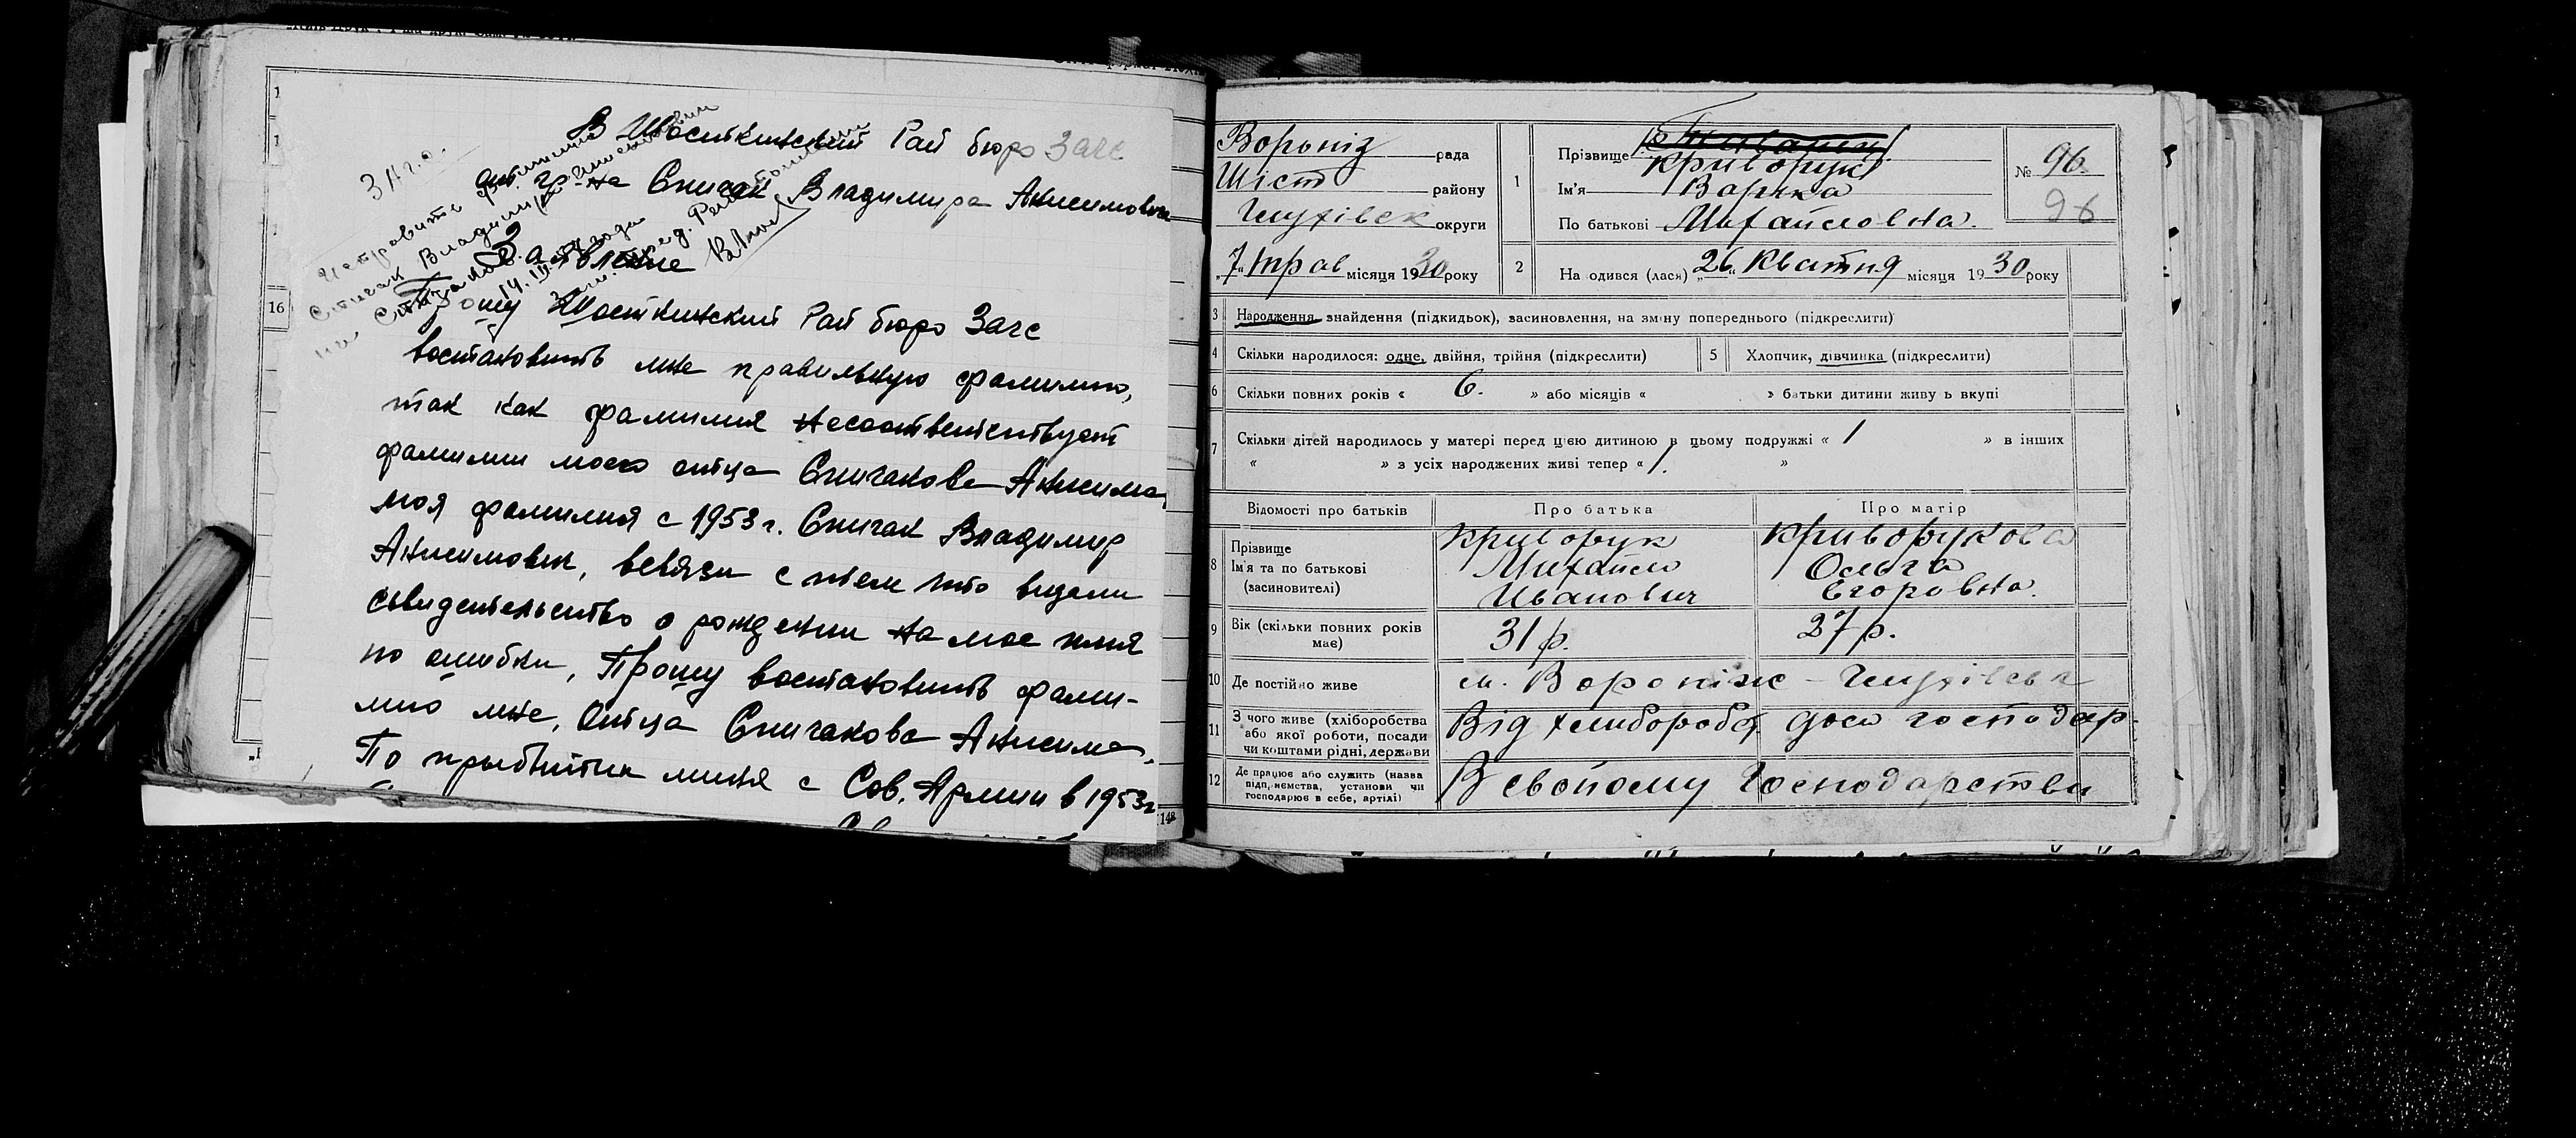 В Шосткинский Рай бюро Загс
от гр-на Спичак Владимира Анисимовича
Заявление
Прошу Шосткинский Рай бюро Загс
востановить мне правильную фамилию,
так как фамилия несоответствует
фамилии моего отца Спичакова Анисима,
моя фамилия с 1953 г. Спичак Владимир
Анисимович, всвязи с тем что выдали
свидетельство о рождении на мое имя
по ошибки, Прошу востановить фами-
лию мне, Отца Спичакова Анисима.
По прыбытии миня с Сов. Армии в 1953г
Загс.
Исправить фамилию
Спичак Владимир
на
16
148
Вороніз рада
Шіст району
Глухівск округи
„7" трав місяця 1930 року
1
Прізвище
Криворук
Ім'я Варька
По батькові Михайловна.
№ 96.
96
2
На одився (лася) „26" Квитня місяця 1930 року
3 Народження знайдення (підкидьок), засиновлення, на зміну попереднього (підкреслити)
4 Скільки народилося: одне, двійня, трійня (підкреслити)
5 Хлопчик, дівчинка (підкреслити)
6 Скільки повних років « 6. » або місяців « » батьки дитини живу ь вкупі
7 Скільки дітей народилось у матері перед цією дитиною в цьому подружжі « 1 » в інших
« » з усіх народжених живі тепер « 1. »
Відомості про батьків Про батька Про матір
8 Прізвище
Ім'я та по батькові
(засиновителі)
Криворук
Михайло
Иванович
Криворукова
Ольга
Егоровна.
9 Вік (скільки повних років
має)
31 р. 27 р.
10 Де постійно живе м. Вороніж - Глухівськ
11 З чого живе (хліборобства
або якої роботи, посади
чи коштами рідні, держави
Від хлибороб дом господар.
12 Де працює або служить (назва
підп,иємства, установи чи
господарює в себе, артілі)
В свойому Господарстви